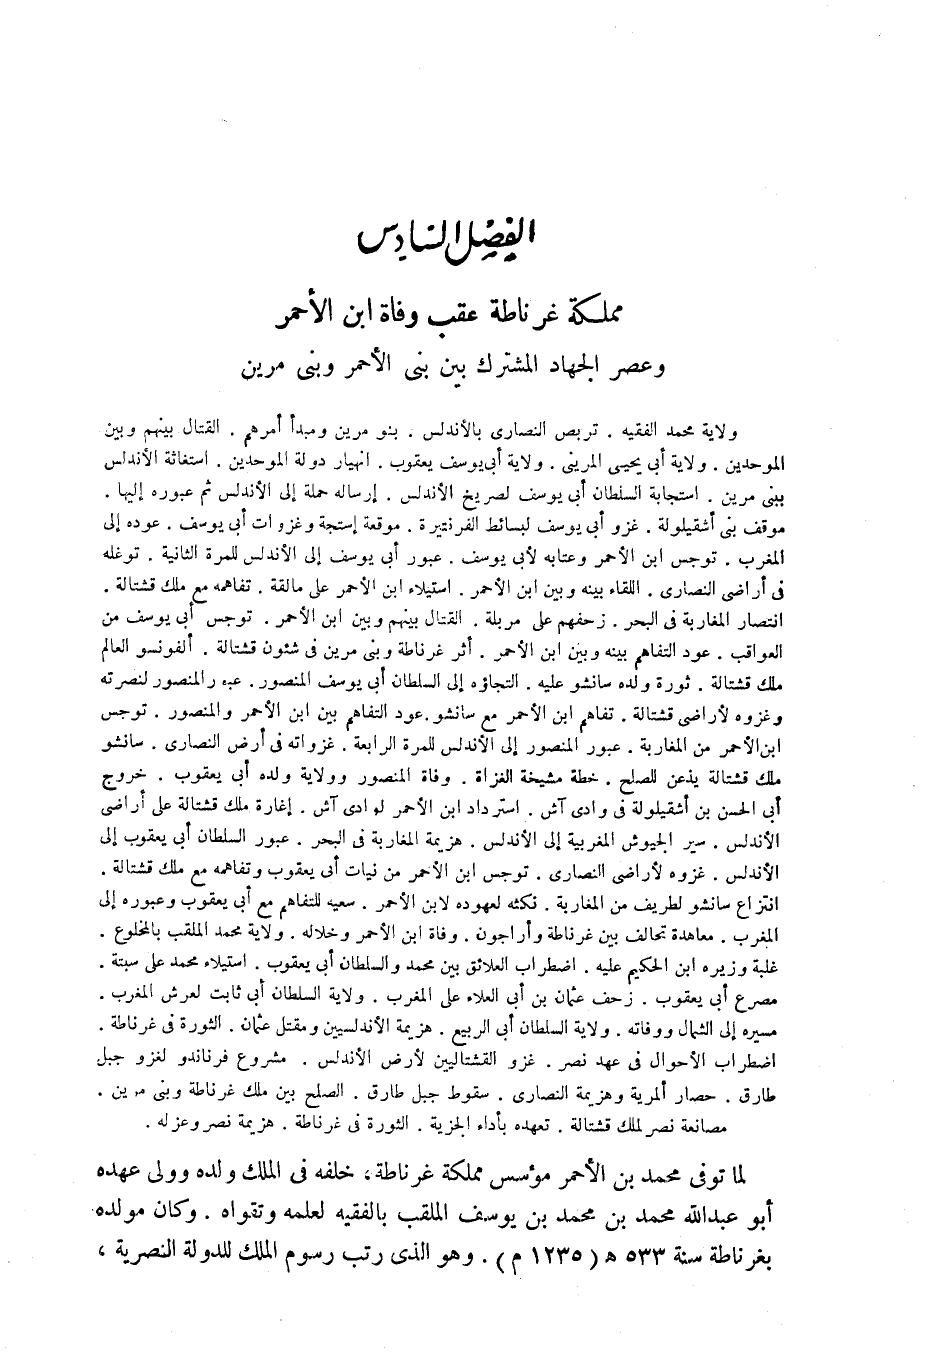 الفصل السادس
مملكة غرناطة عقب وفاة ابن الأحمر
وعصر الجهاد المشترك بين بنى الأحمر وبنى مرين
ولاية محمد الفقيه . تربص النصارى بالأندلس . بنو مرين ومبدأ أمرهم . القتال بينهم وبين
الموحدين . ولاية أبى يحيى المرينى . ولاية أبى يوسف يعقوب . انهيار دولة الموحدين . استغاثة الأندلس
ببنى مرين . استجابة السلطان أبى يوسف لصريخ الأندلس . إرساله حملة إلى الأندلس ثم عبوره إليها .
موقف بنى أشقيلولة . غزو أبى يوسف لبسائط الفرنتيرة . موقعة إستجة وغزوات أبى يوسف . عوده إلى
المغرب . توجس ابن الأحمر وعتابه لأبى يوسف . عبور أبى يوسف إلى الأندلس للمرة الثانية . توغله
فى أراضى النصارى . اللقاء بينه وبين ابن الأحمر . استيلاء ابن الأحمر على مالقة . تفاهمه مع ملك قشتالة .
انتصار المغاربة فى البحر . زحفهم على مربلة . القتال بينهم وبين ابن الأحمر . توجس أبى يوسف من
العواقب . عود التفاهم بينه وبين ابن الأحمر . أثر غرناطة وبنى مرين فى شئون قشتالة . ألفونسو العالم
ملك قشتالة . ثورة ولده سانشو عليه . التجاؤه إلى السلطان أبى يوسف المنصور . عبور المنصور لنصرته
وغزوه لأراضى قشتالة . تفاهم ابن الأحمر مع سانشو . عود التفاهم بين ابن الأحمر والمنصور . توجس
ابن الأحمر من المغاربة . عبور المنصور إلى الأندلس للمرة الرابعة . غزواته فى أرض النصارى . سانشو
ملك قشتالة يذعن للصلح . خطة مشيخة الغزاة . وفاة المنصور وولاية ولده أبى يعقوب . خروج
أبى الحسن بن أشقيلولة فى وادى آش . استرداد ابن الأحمر لوادى آش . إغارة ملك قشتالة على أراضى
الأندلس . سير الجيوش المغربية إلى الأندلس . هزيمة المغاربة فى البحر . عبور السلطان أبى يعقوب إلى
الأندلس . غزوه لأراضى النصارى . توجس ابن الأحمر من نيات أبى يعقوب وتفاهمه مع ملك قشتالة .
انتزاع سانشو لطريف من المغاربة . نكثه لعهوده لابن الأحمر . سعيه للتفاهم مع أبى يعقوب وعبوره إلى
المغرب . معاهدة تحالف بين غرناطة وأراجون . وفاة ابن الأحمر وخلاله . ولاية محمد الملقب بالمخلوع .
غلبة وزيره ابن الحكيم عليه . اضطراب العلائق بين محمد والسلطان أبى يعقوب . استيلاء محمد على سبتة .
مصرع أبى يعقوب . زحف عثمان بن أبى العلاء على المغرب . ولاية السلطان أبى ثابت لعرش المغرب .
مسيره إلى الشمال ووفاته . ولاية السلطان أبى الربيع . هزيمة الأندلسيين ومقتل عثمان . الثورة فى غرناطة .
اضطراب الأحوال فى عهد نصر . غزو القشتاليين لأرض الأندلس . مشروع فرناندو لغزو جبل
طارق . حصار ألمرية وهزيمة النصارى . سقوط جبل طارق . الصلح بين ملك غرناطة وبنى مرين .
مصانعة نصر لملك قشتالة . تعهده بأداء الجزية . الثورة فى غرناطة . هزيمة نصر وعزله .
لما توفى محمد بن الأحمر مؤسس مملكة غرناطة ، خلفه فى الملك ولده وولى عهده
أبو عبدالله محمد بن محمد بن يوسف الملقب بالفقيه لعلمه وتقواه . وكان مولده
بغرناطة سنة ٥٣٣ ه (١٢٣٥ م) . وهو الذى رتب رسوم الملك للدولة النصرية ،